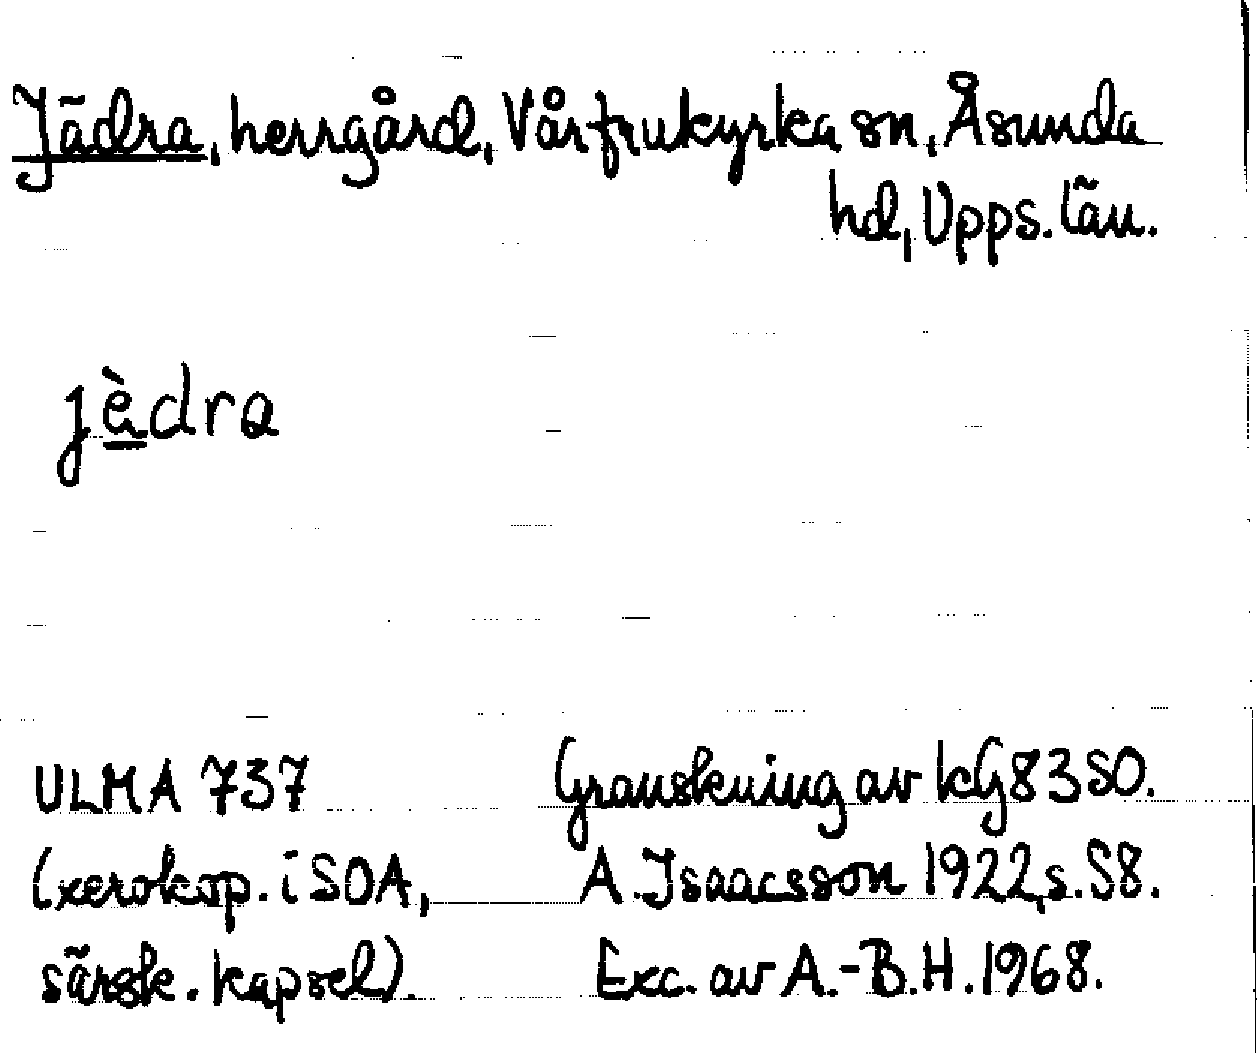 Jädra, herrgård, Vårfrukyrka sn, Åsunda
hd, Upps. län.
jèdra
ULMA 737
(xerokop. i SOA,
särsk. kapsel).
Granskning av kG8350.
A. Isaacsson 1922, s. 58.
Exc. av A.-B.H. 1968.